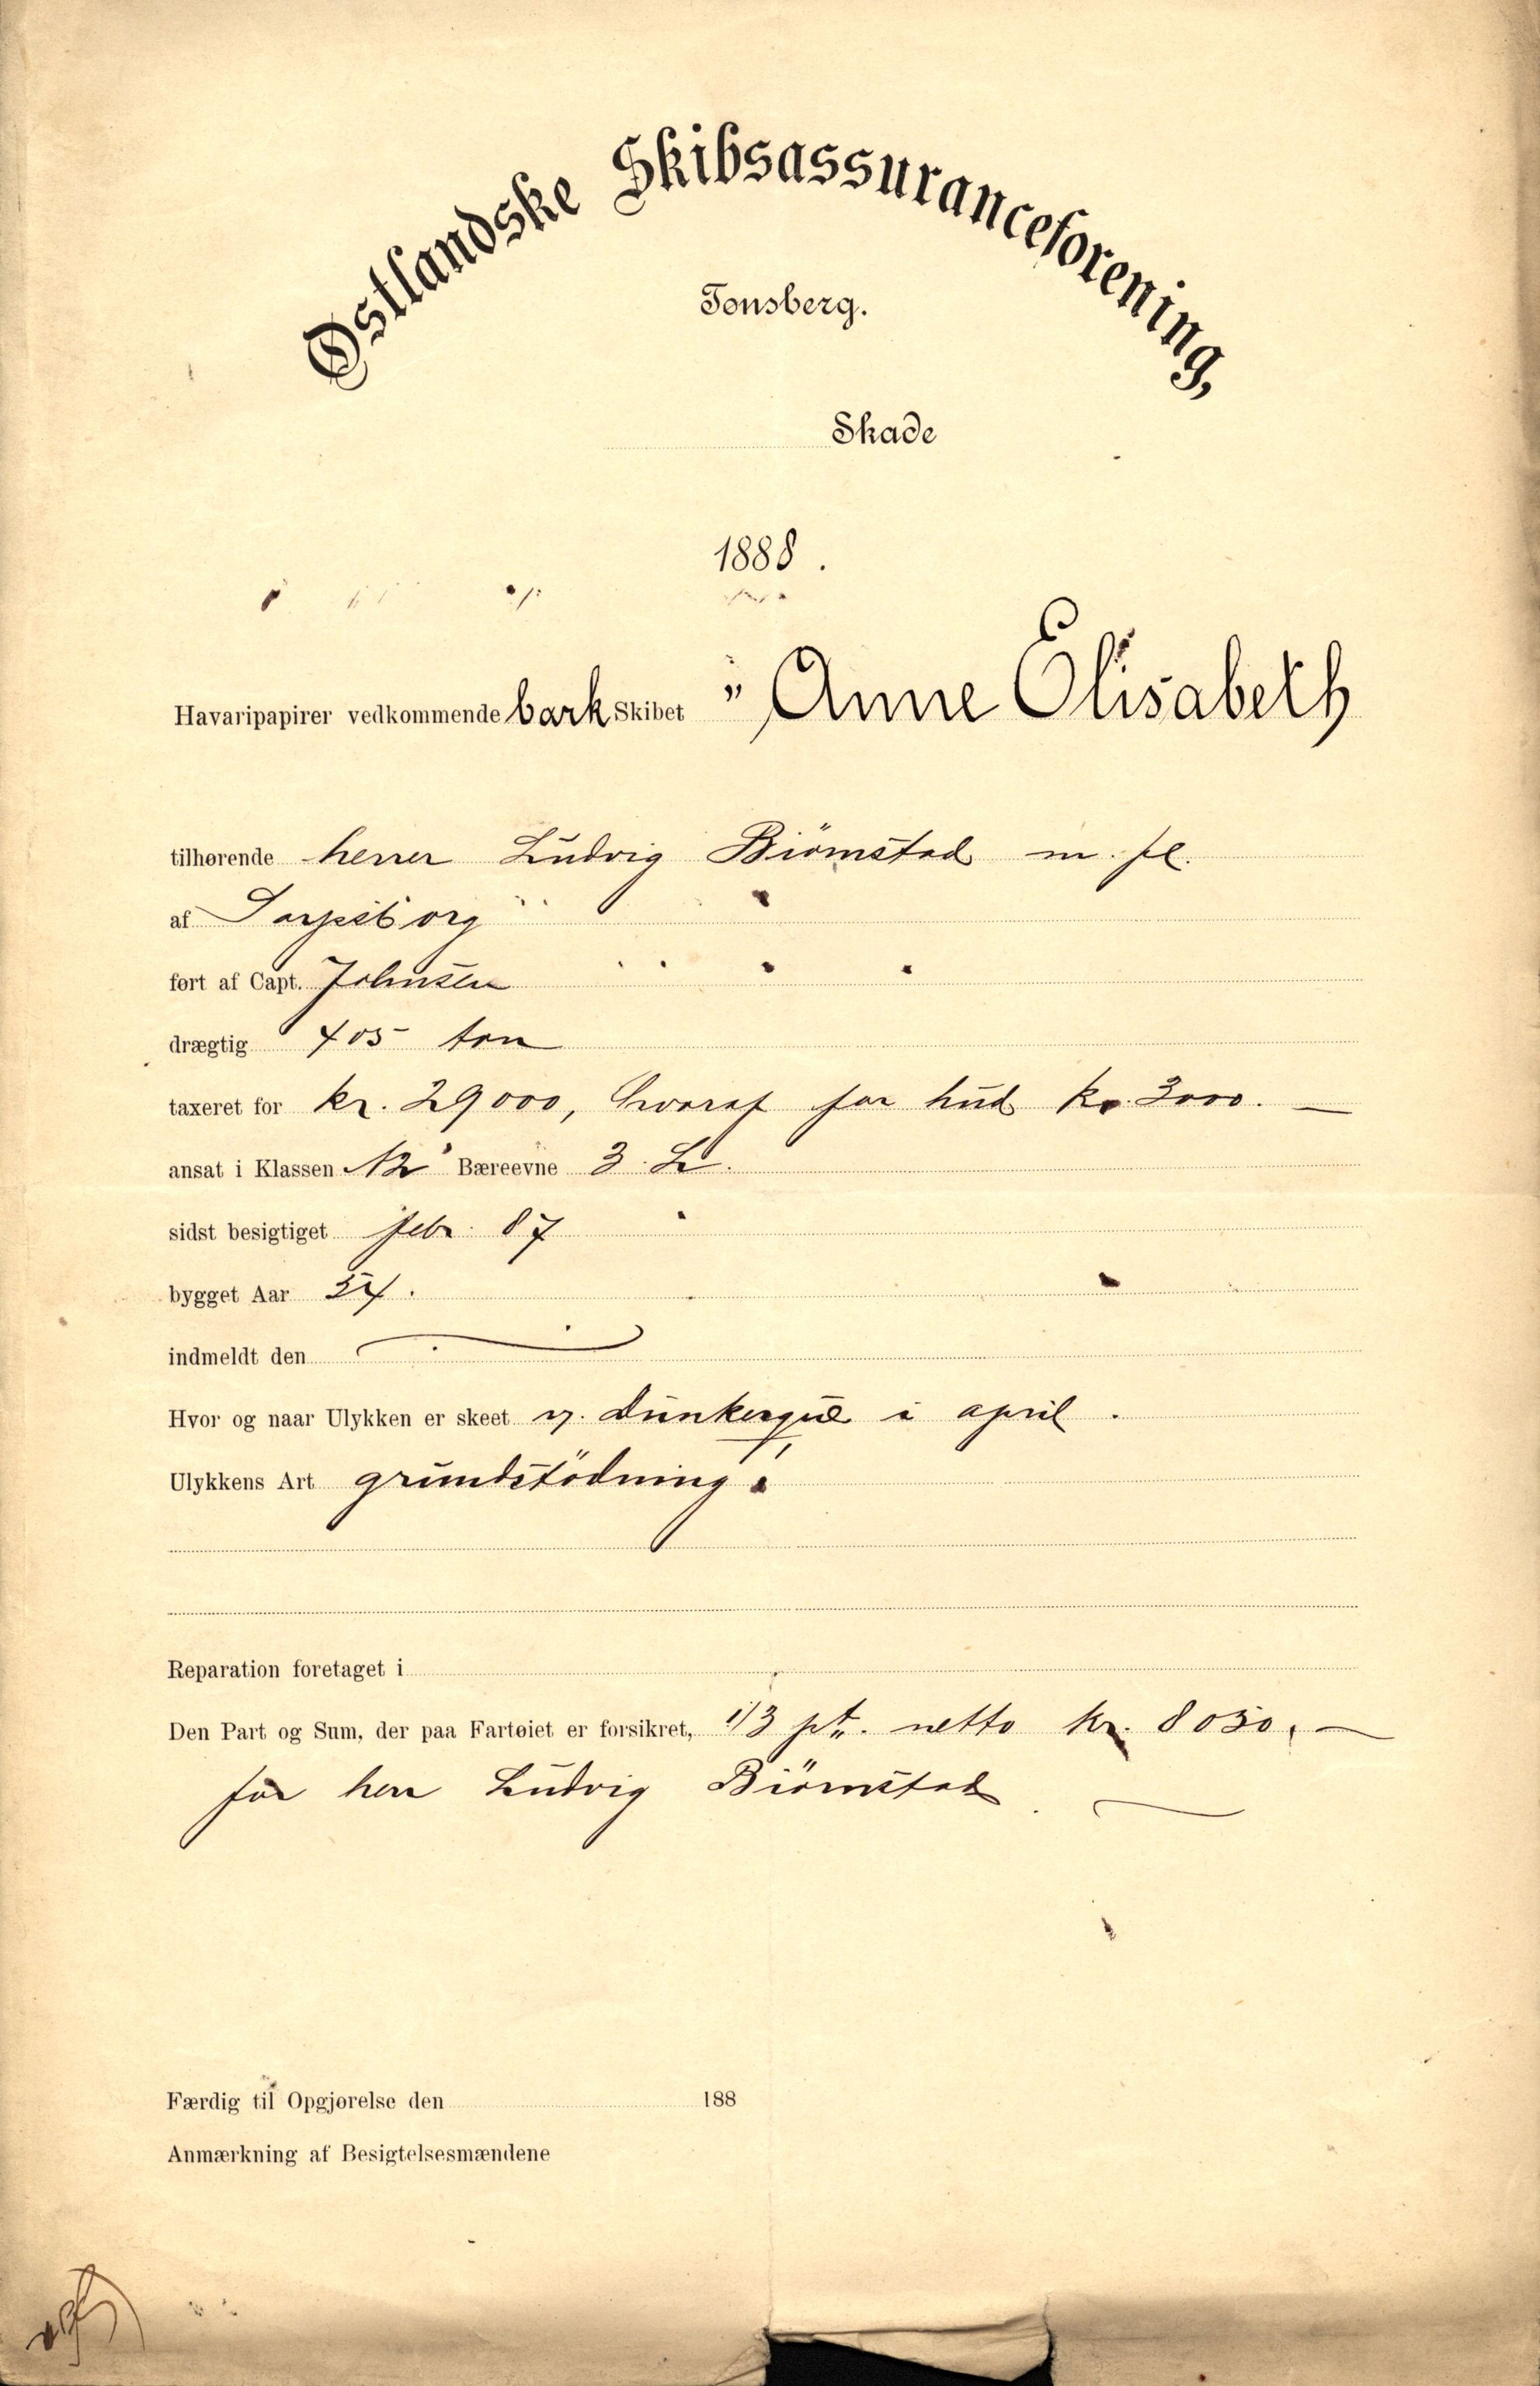 Østlandske Skibsassuranceforening,
Tønsberg.
Skade
1888.
Havaripapirer vedkommende bark Skibet "Anne Elisabeth
tilhørende herrer Ludvig Biörnstad m. fl.
af Sarpsborg
ført af Capt. Johnsen
drægtig 405 ton
taxeret for kr. 29000, hvoraf for hud kr. 3000. —
ansat i Klassen Bæreevne 3. L.
sidst besigtiget febr. 87
bygget Aar 54.
indmeldt den
Hvor og naar Ulykken er skeet v. Dunkerque i april.
Ulykkens Art grundstödning.
Reparation foretaget i
Den Part og Sum, der paa Fartøiet er forsikret, 1/3 pt. netto kr. 8050. —
for herr Ludvig Biörnstad
Færdig til Opgjørelse den 188
Anmærkning af Besigtelsesmændene